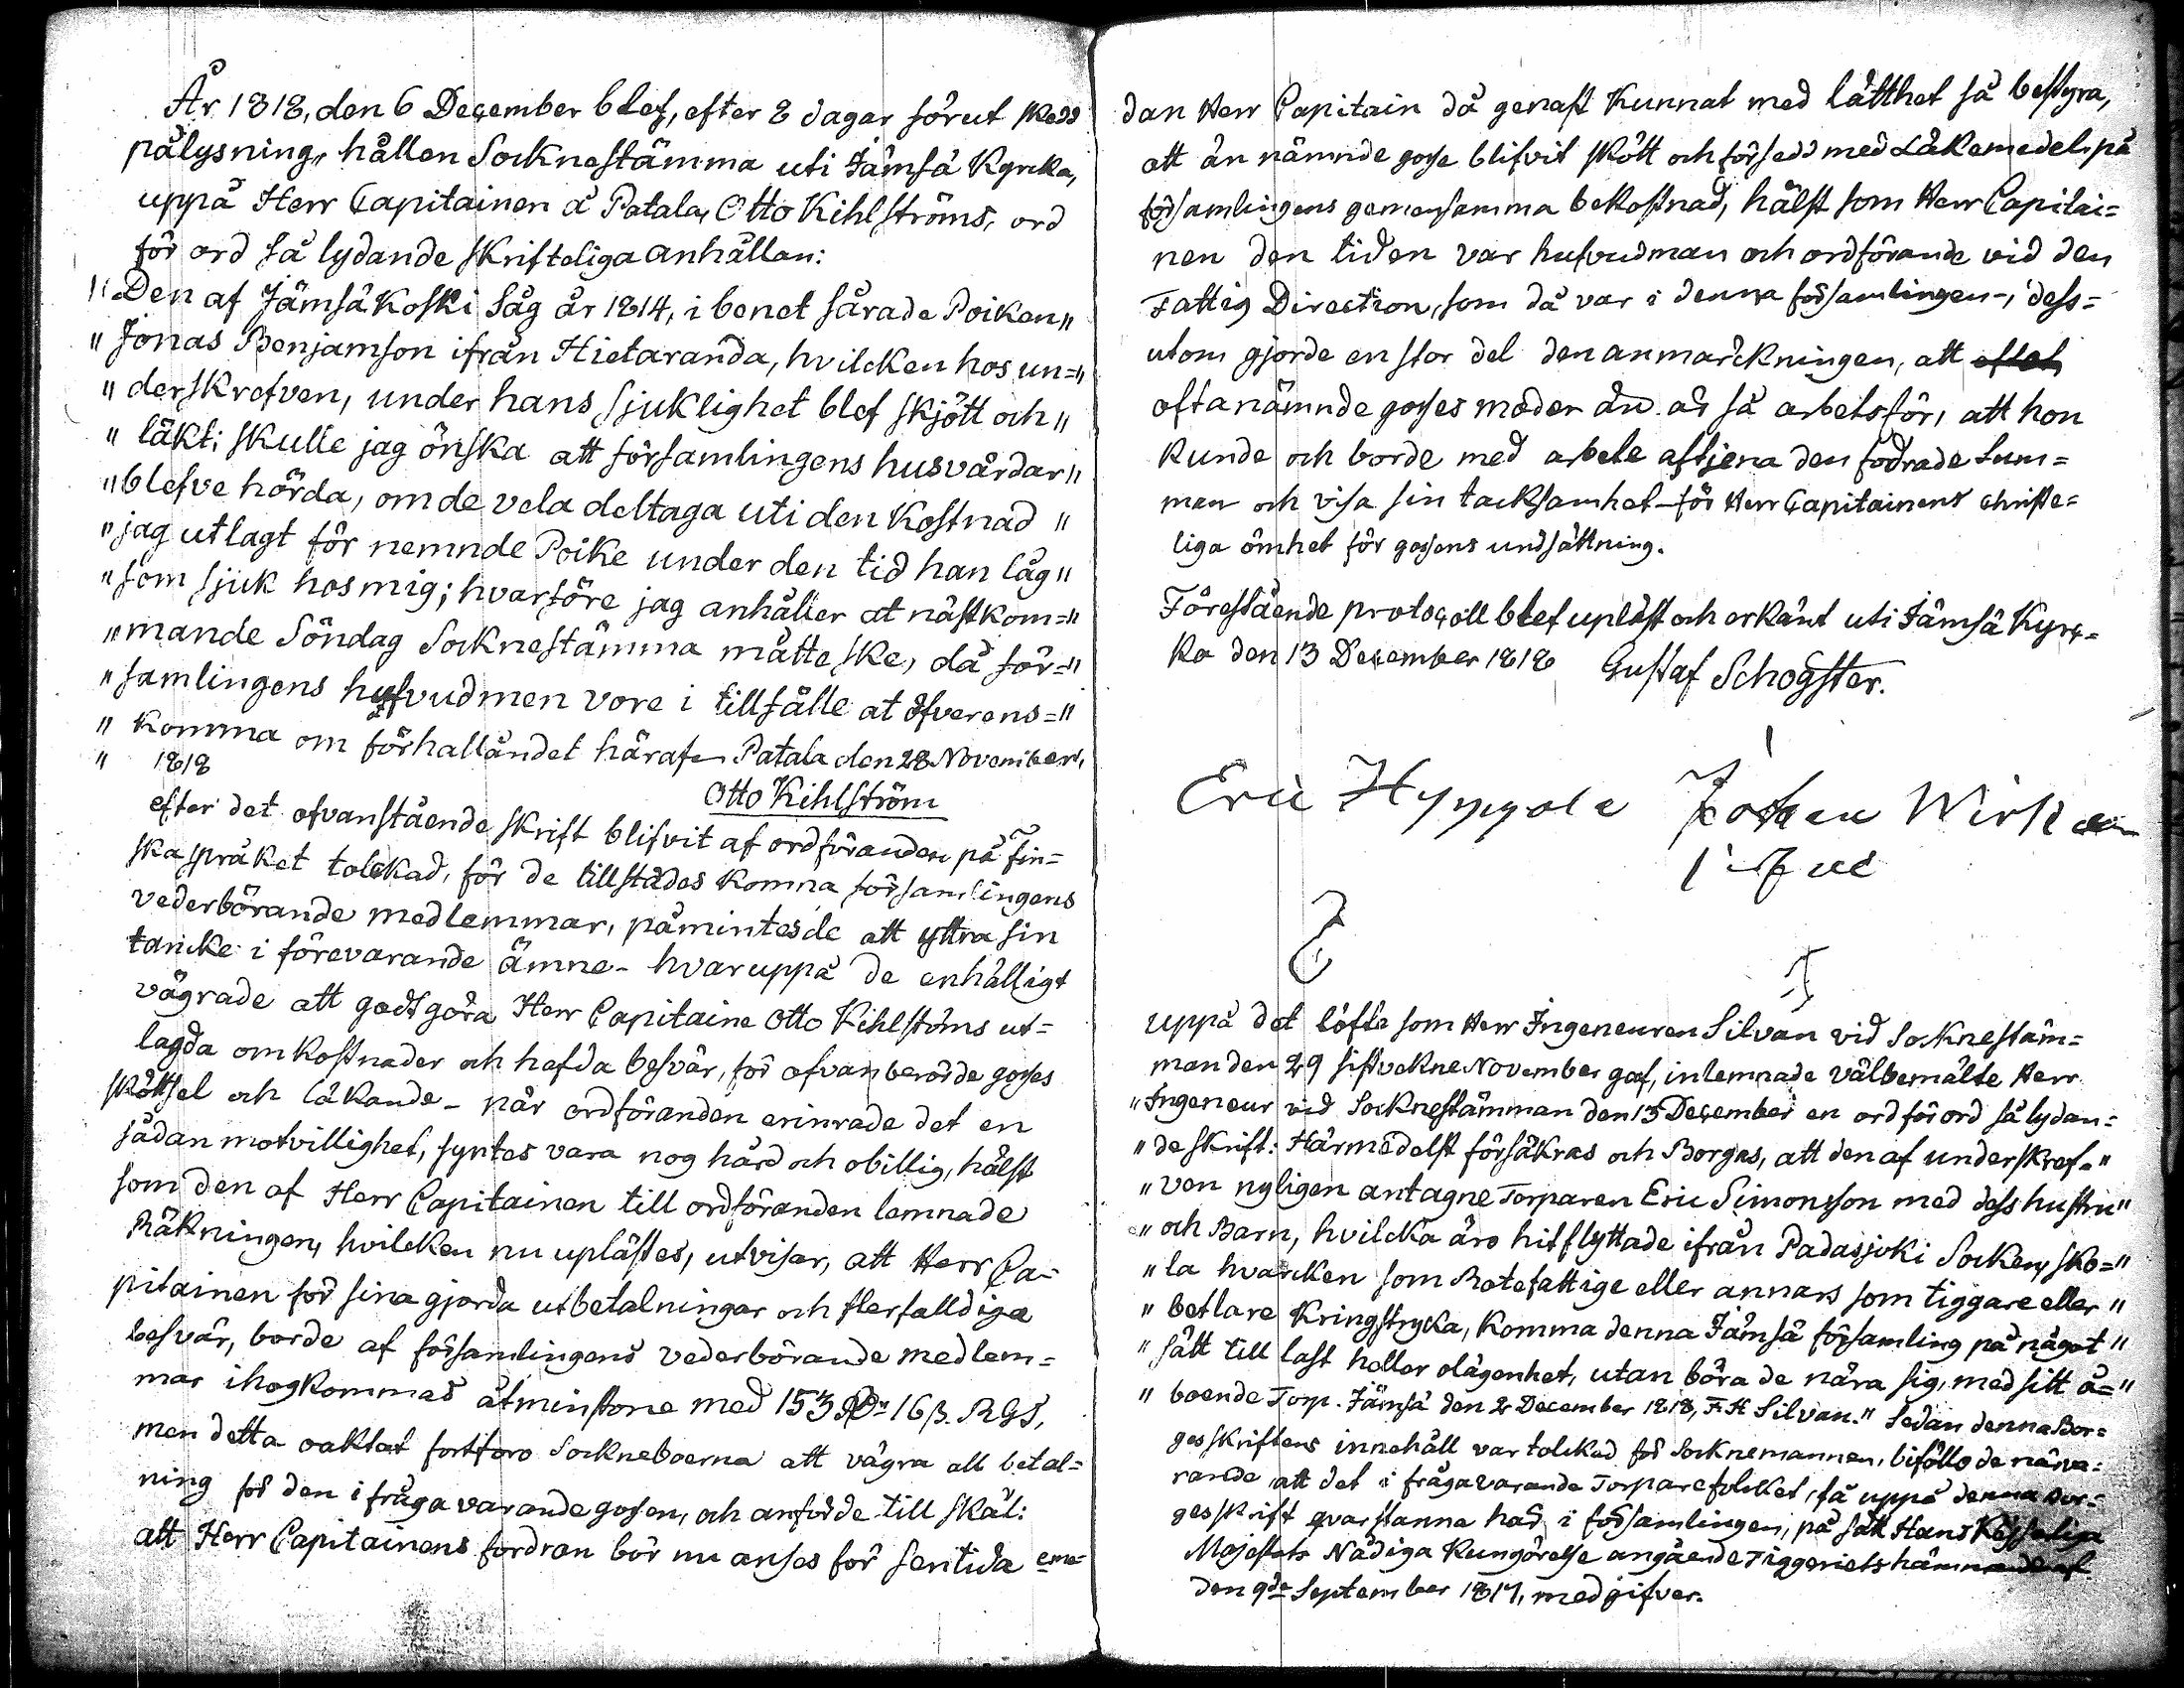 År 1818, den 6 December blef, efter 8 dagar förut skedd
pålysning, hållen Socknestämma uti Jämsä Kyrcka,
uppå Herr Capitainen å Patala, Otto Kihlströms, ord
för ord så lydande skrifteliga anhållan:
"Den af Jämsäkoski Såg år 1814, i benet sårade Poiken"
"Jonas Benjamson ifrån Hietaranda, hvilcken hos un="
"derskrefven, under hans sjuklighet blef skjött och"
"läkt; skulle jag önska att församlingens husvärdar"
"blefve hörda, om de vela deltaga uti den Kostnad"
"jag utlagt för nemnde Poike under den tid han låg"
"som sjuk hos mig; hvarföre jag anhåller at nästkom="
"mande Söndag Socknestämma måtte ske, då för="
"samlingens hufvudmen vore i tillfälle at öfverens="
"komma om förhallandet häraf. Patala den 28 November,
" 1818
Otto Kihlström
efter det ofvanstående skrift blifvit af ordföranden på Fin=
ska språket tolckad, för de tillstädes komna församlingens
vederbörande medlemmar, påmintes de att yttra sin
tancke i förevarande ämne - hvaruppå de enhälligt
vägrade att godtgöra Herr Capitaine Otto Kihlstöms ut=
lagda omkostnader och hafda besvär, för ofvanberörde gosses
skötsel och läkande - när ordföranden erinrade det en
sådan motvillighet, syntes vara nog hård och obillig, hälst
som den af Herr Capitainen till ordföranden lemnade
Räkningen, hvilcken nu uplästes, utvisar, att Herr Ca=
pitainen för sina gjorda utbetalningar och flerfalldiga
besvär, borde af församlingens vederbörande medlem=
mar ihogkommas åtminstone med 153 Rd 16 ß. RGS,
men detta oaktat fortforo Sockneboerna att vägra all betal=
ning för den i fråga varande gossen, och anförde till skäl:
att Herr Capitainens fordran bör nu anses för sentida eme=
dan Herr Capitain då genast kunnat med lätthet så bestyra,
att än nämnde gosse blifvit skött och försedd med Läkemedel på
församlingens gemensamma bekostnad, hälst som Herr Capitai=
nen den tiden var hufvudman och ordförande vid den
Fattig Direction, som då var i denna församlingen -, dess=
utom gjorde en stor del den anmärckningen, att
oftanämnde gosses moder än är så arbetsför, att hon
kunde och borde med arbete aftjena den fodrade Sum=
man och visa sin tacksamhet för Herr Capitainens christe=
liga ömhet för gossens undsättning.
Förestående protocoll blef upläst och erkänt uti Jämsä Kyrc=
ka den 13 December 1818 Gustaf Schogster.
Eric Hyppole Johan
uppå det löfte som Herr Ingeneuren Silvan vid Socknestäm=
man den 29 sistvekne November gaf, inlemnade välbemälte Herr
"Ingeneur vid Socknestämman den 13 December en ord för ord så lydan=
"de skrift: Härmedelst försäkras och Borgas, att den af underskref="
"ven nyligen antagne Torparen Eric Simonsson med dess hustru"
"och Barn, hvilcka äro hitflyttade ifrån Padasjoki Socken, sko="
"la hvarcken som Rotefattige eller annars som tiggare eller"
"betlare Kringstryka, komma denna Jämsä församling på något"
"sätt till last heller olägenhet, utan böra de nära sig, med sitt å="
"boende Torp. Jämsä den 2 December 1818, F H Silvan." Sedan denna Bor=
gesskriftens innehåll var tolckad för Socknemannen, biföllo de närva=
rande att det i fråga varande Torparefolcket, få uppå denna Bor=
gesskrift qvarstanna här i församlingen, på sätt Hans Kejserliga
Majestets Nådiga Kungörelse angående Tiggeriets hämmande af
den 9de September 1817, medgifver.